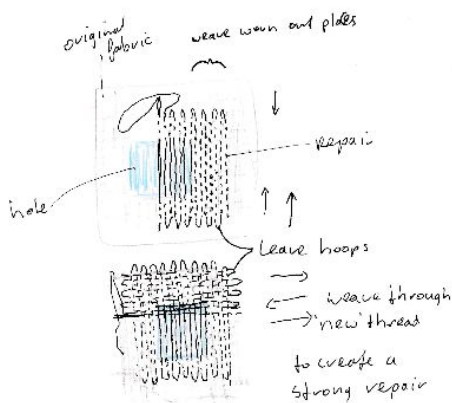 original
fabric
weave worn out plates
repair
hole
Leave hoops
weave through
'new' thread
to create a
strong repair